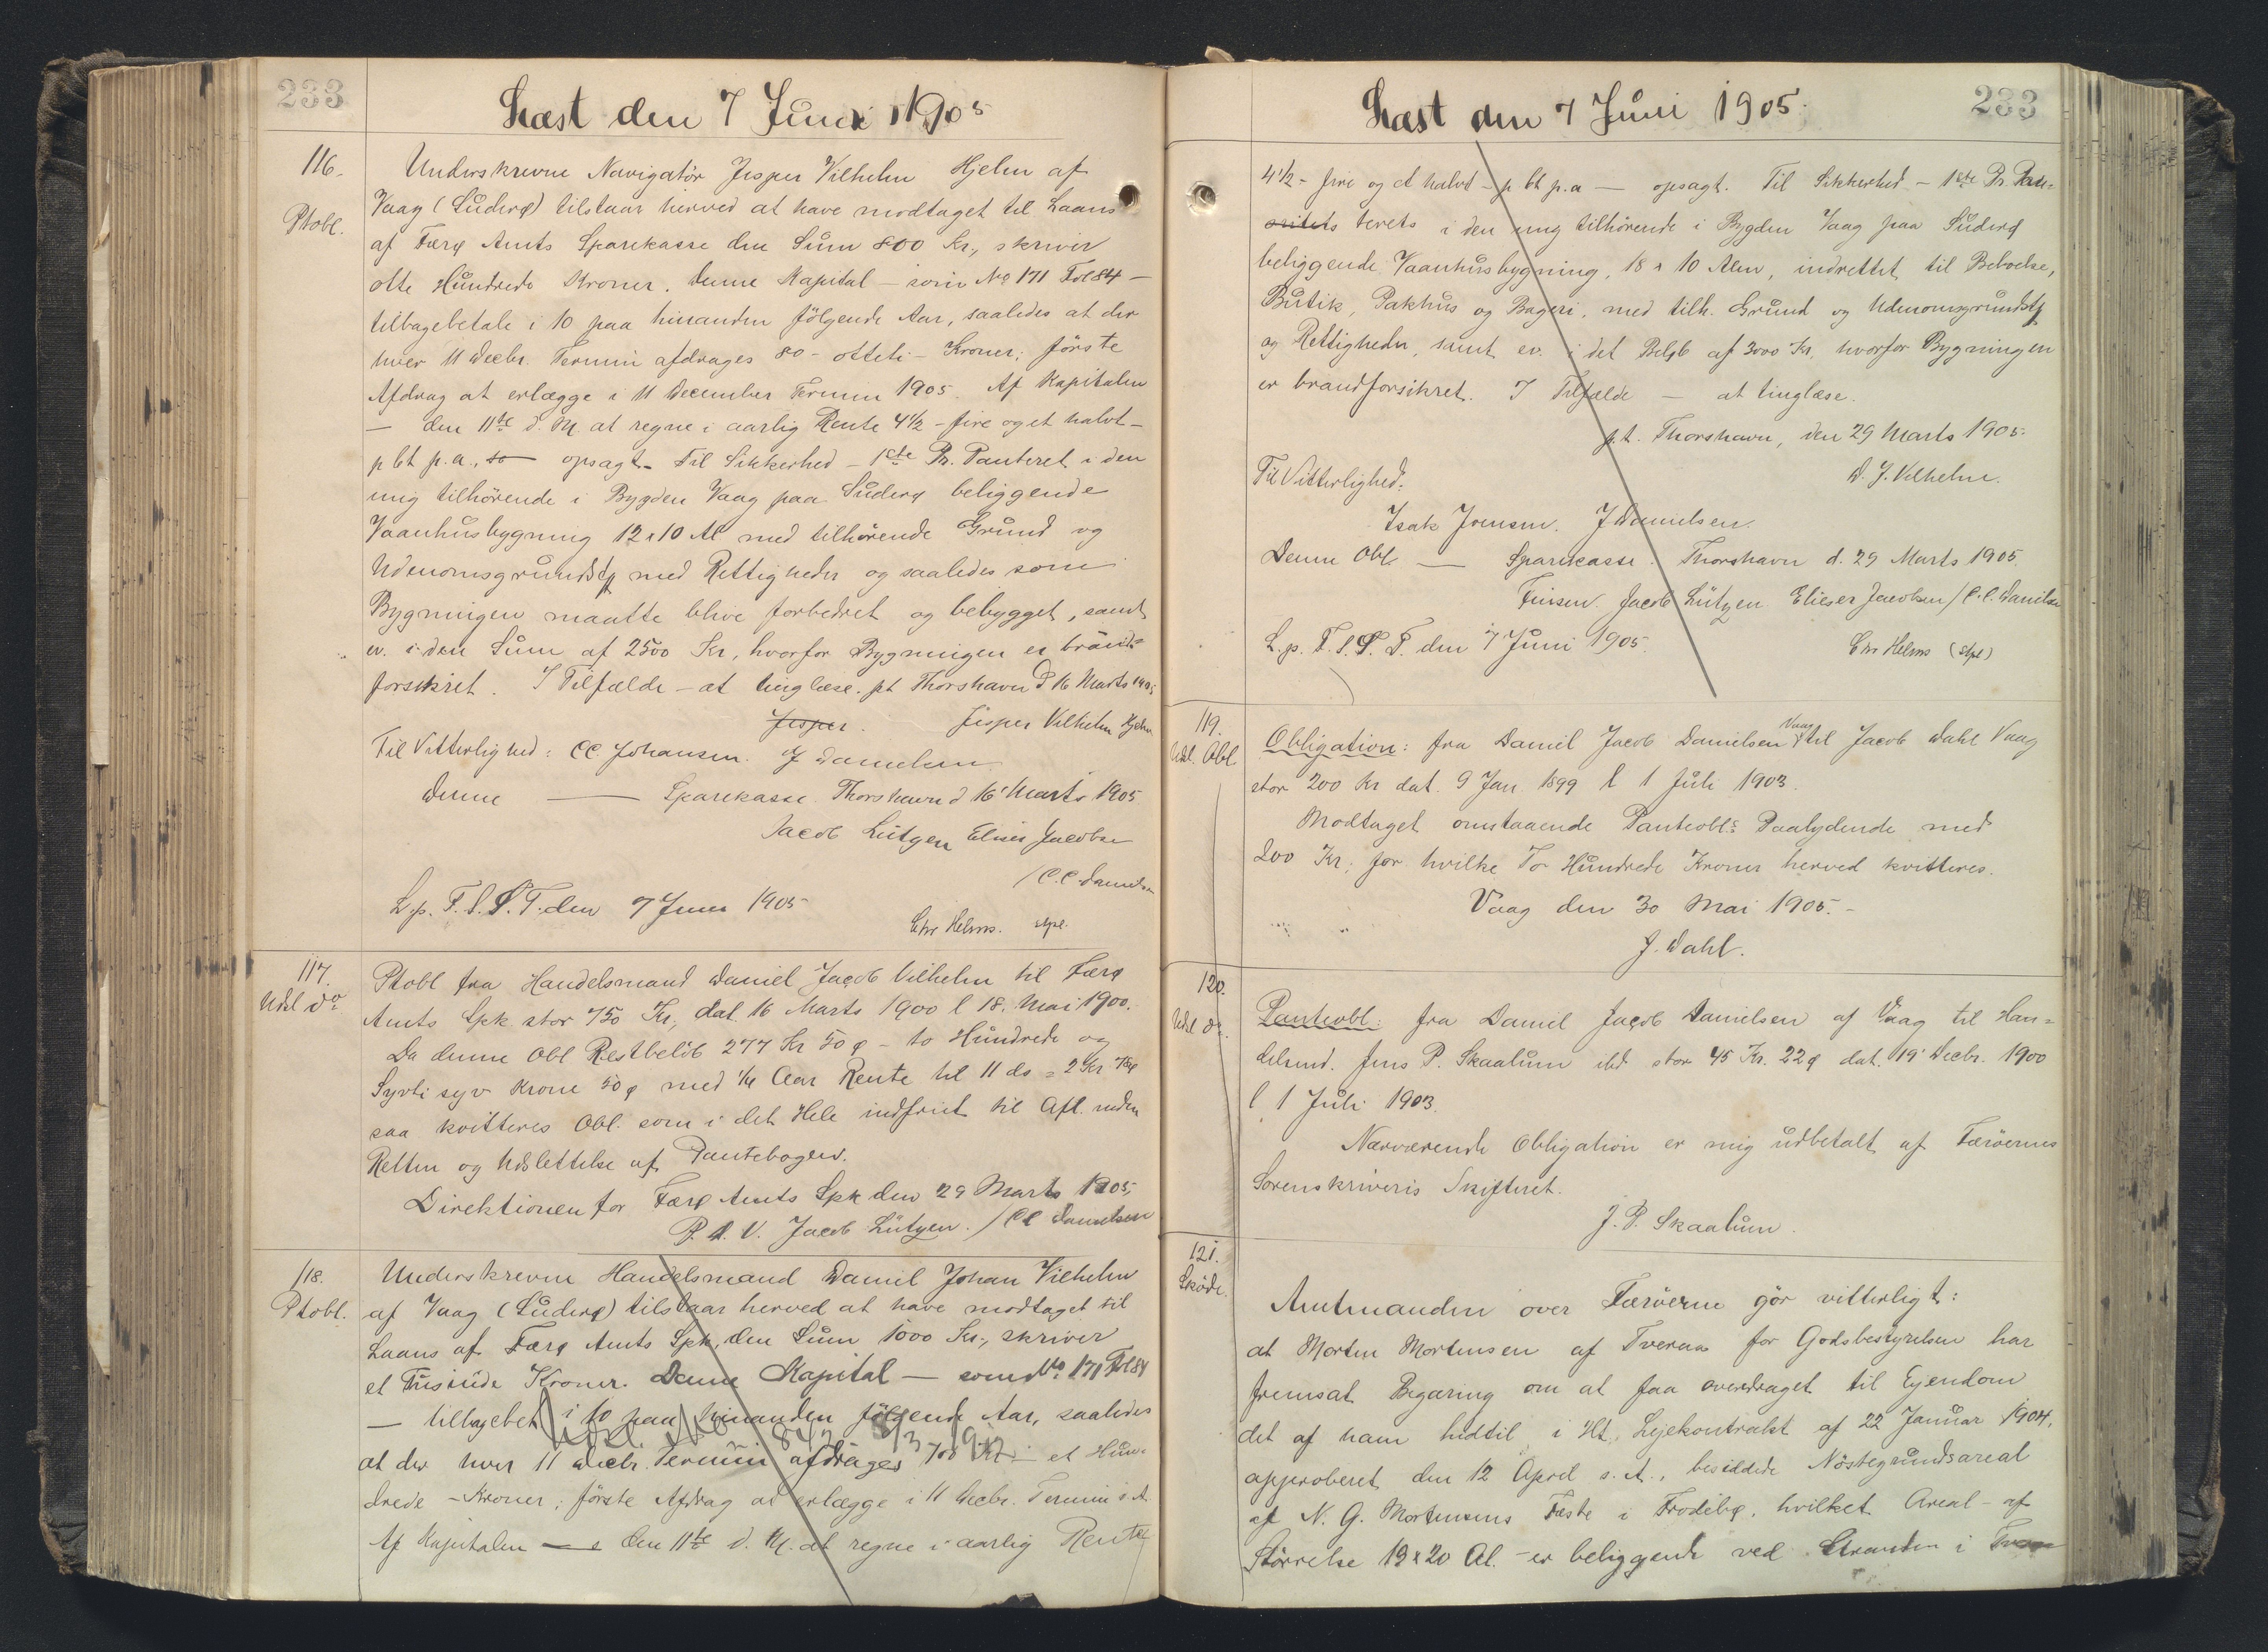 233
Læst den 7 Juni 1905
116.
Ptobl.
Underskrevne Navigatör Jesper Vilhelm Hjelm af
Vaag (Suderø) tilstaar herved at have modtaget til Laans
af Færø Amts Sparekasse den Sum 800 Kr., skriver
otte Hundrede Kroner. Denne Kapital – som No 171 Fol 84 –
tilbagebetale i 10 paa hinanden fölgende Aar, saaledes at der
hver 11 Decbr. Termin afdrages 80 - otteti - Kroner; förste
Afdrag at erlægge i 11 December Termin 1905. Af Kapitalen
— den 11te d. M. at regne i aarlig Rente 4½ - fire og et halvt -
p Ct p.a., — opsagt. Til Sikkerhed – 1ste Pr. Panteret i den
mig tilhörende i Bygden Vaag paa Suderø beliggende
Vaanhusbygning 12 x 10 Al med tilhörende Grund og
Udenomsgrundstk med Rettigheder og saaledes som
Bygningen maatte blive forbedret og bebygget, samt
ev. i den Sum af 2500 Kr, hvorfor Bygningen er brand=
forsikret. I Tilfælde – at tinglæse. pt Thorshavn d 16 Marts 1905
Jesper. Jesper Vilhelm Hjelm
Til Vitterlighed: CC. Johansen. J Danielsen
Denne — Sparekasse. Thorshavn d 16 Marts 1905
Jacob Lützen Elieser Jacobsen
/C.C. Danielsen
L.p. F.S.S.T. den 7 Juni 1905
Chr Helms. Spl.
117.
Udsl do
Ptobl fra Handelsmand Daniel Jacob Vilhelm til Færø
Amts Spk stor 750 Kr, dat. 16 Marts 1900 l 18. Mai 1900.
Da denne Obl Restbelöb 277 Kr 50 ø – to Hundrede og
Syvti syv Krone 50 ø med ¼ Aar Rente til 11 ds = 2 Kr 78 ø
saa kvitteres Obl. som i det Hele indfriet til Afl. inden
Retten og Udslettelse af Pantebogen.
Direktionen for Færø Amts Spk den 29 Marts 1905,
P. D. V. Jacob Lützen. /CC Danielsen
118.
Ptobl.
Underskrevne Handelsmand Daniel Johan Vilhelm
af Vaag (Suderø) tilstaar herved at have modtaget til
Laans af Færø Amts Spk, den Sum 1000 Kr., skriver
et Tusinde Kroner. Denne Kapital — som No. 171 Fol 84
— tilbagebet i 10 paa hinanden fölgende Aar, saaledes
at der hver 11 Decbr. Termin afdrages 100 Kr - et Hun=
drede - Kroner; förste Afdrag at erlægge i 11 Decbr. Termin d. A.
Af Kapitalen — den 11te d. M. at regne i aarlig Rente
233
Læst den 7 Juni 1905.
4½ - fire og et halvt - p Ct p.a — opsagt. Til Sikkerhed – 1ste Pr. Pan=
terets i den mig tilhörende i Bygden Vaag paa Suderø
beliggende Vaanhusbygning, 18 x 10 Alen, indrettet til Beboelse,
Butik, Pakhus og Bageri, med tilh. Grund og Udenomsgrundstk
og Rettigheder, samt ev. i det Belöb af 3000 Kr, hvorfor Bygningen
er brandforsikret. I Tilfælde — at tinglæse.
p.t. Thorshavn, den 29 Marts 1905.
Til Vitterlighed: D. J. Vilhelm.
Isak Joensen. J Danielsen
Denne Obl — Sparekasse. Thorshavn d. 29 Marts 1905.
Finsen. Jacob Lützen Elieser Jacobsen / C.C. Danielsen
L.p. F.S.S.T. den 7 Juni 1905. Chr Helms (Spl)
119.
Udsl. Obl.
Obligation: fra Daniel Jacob Danielsen Vaag til Jacob Dahl Vaag
stor 200 Kr dat. 9 Jan 1899 l 1 Juli 1903.
Modtaget omstaaende Panteobls Paalydende med
200 Kr; for hvilke To Hundrede Kroner herved kvitteres.
Vaag den 30 Mai 1905. -
J. Dahl.
120.
Udsl do.
Panteobl: fra Daniel Jacob Danielsen af Vaag til Han=
delsmd. Jens P. Skaalum ibd stor 45 Kr. 22 ø dat. 19 Decbr. 1900
l 1 Juli 1903.
Nærværende Obligation er mig udbetalt af Færöernes
Sorenskriveris Skifteret.
J. P. Skaalum.
121.
Sköde.
Amtmanden over Færöerne gör vitterligt:
at Morten Mortensen af Tveraa for Godsbestyrelsen har
fremsat Begæring om at faa overdraget til Ejendom
det af ham hidtil i Ht. Lejekontrakt af 22 Januar 1904,
approberet den 12 April s. A., besiddede Nöstegrundsareal
af N. G. Mortensens Fæste i Frodebø, hvilket Areal - af
Störrelse 19 x 20 Al. - er beliggende ved Stranden i